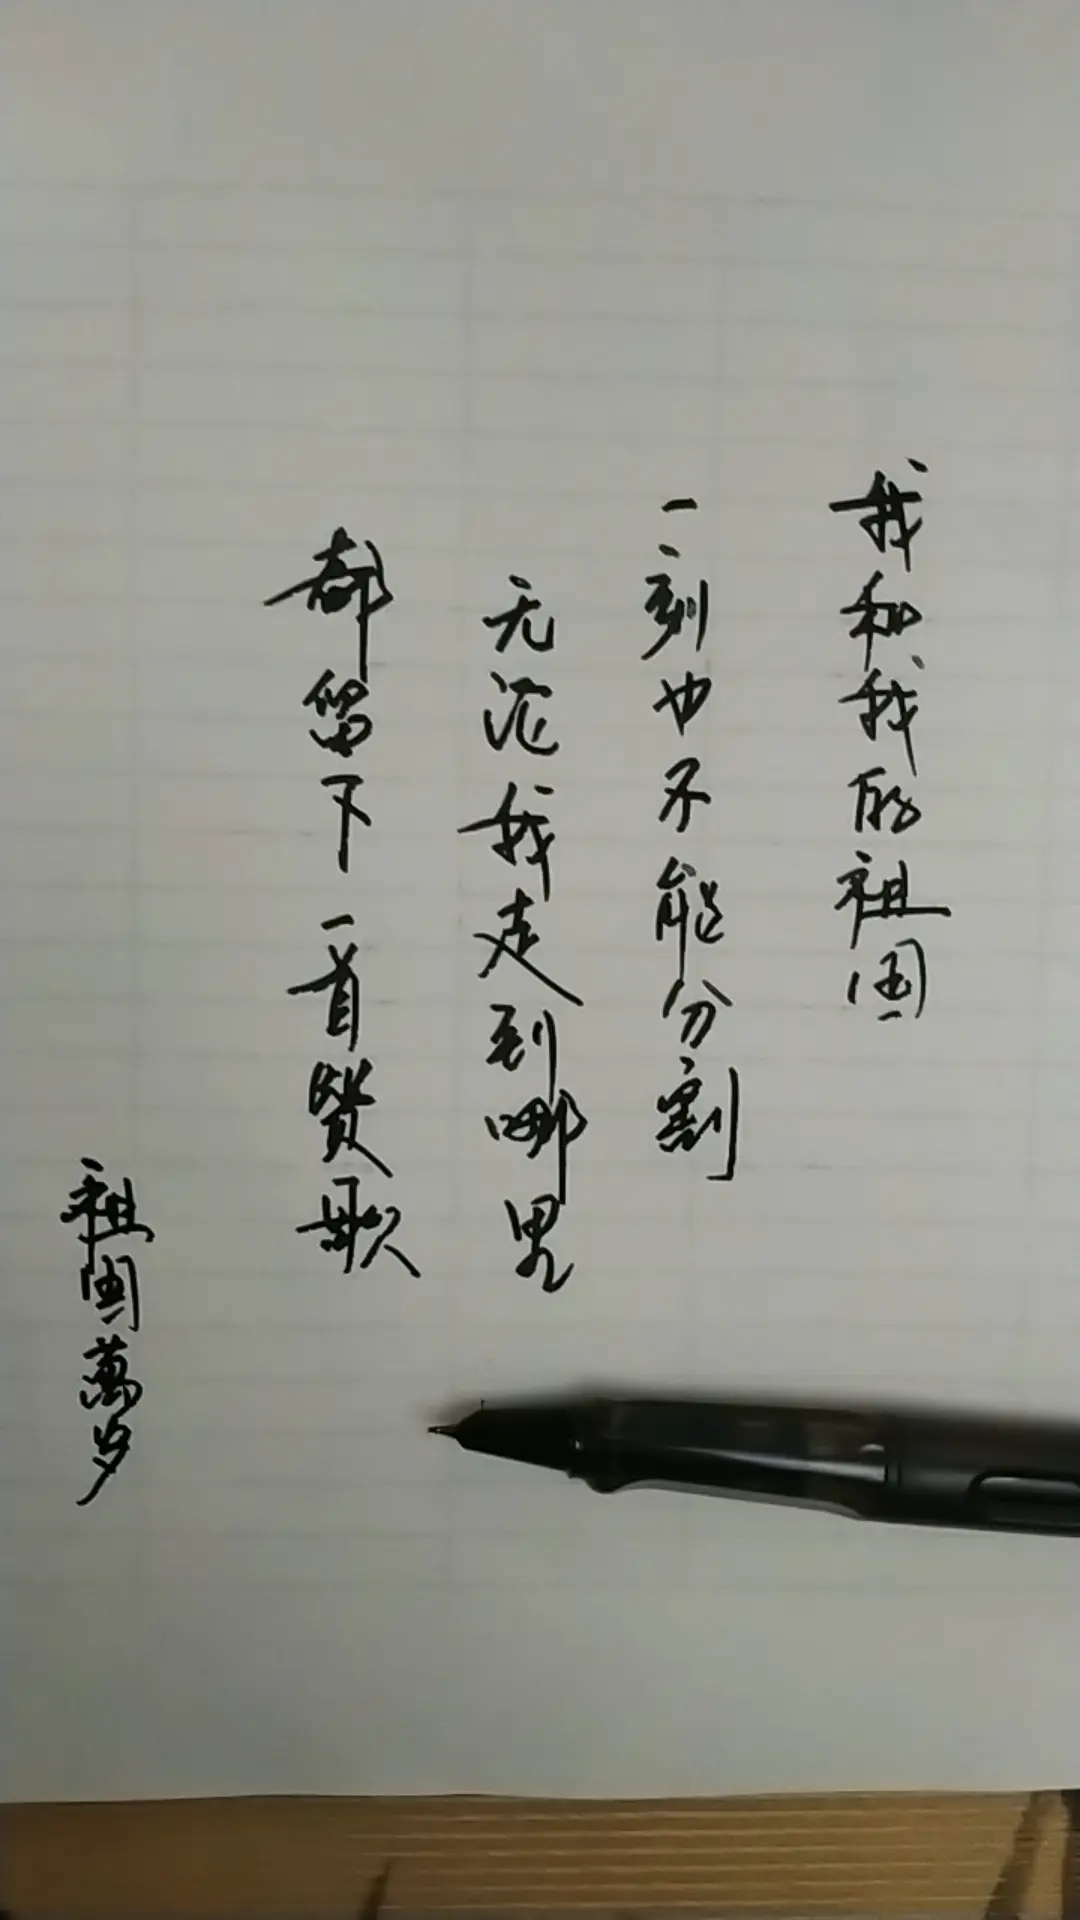 我和我的祖国
一刻也不能分割
无论我走到哪里
都留下一首赞歌
祖国萬岁